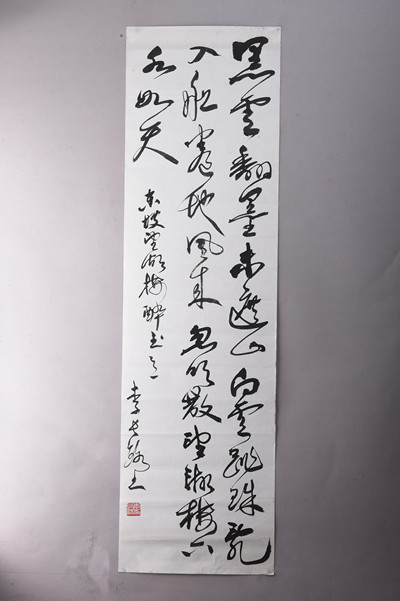 黑雲翻墨未遮山白雲跳珠亂
入船卷地風來忽吹散望湖樓下
水如天
東坡望湖樓醉书之一
李长